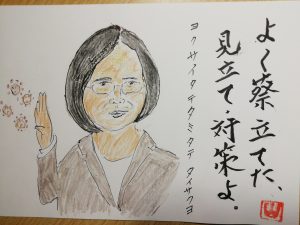 よく蔡立てた、
見立て・対策よ。
ヨクサイタテタミタテ タイサクヨ